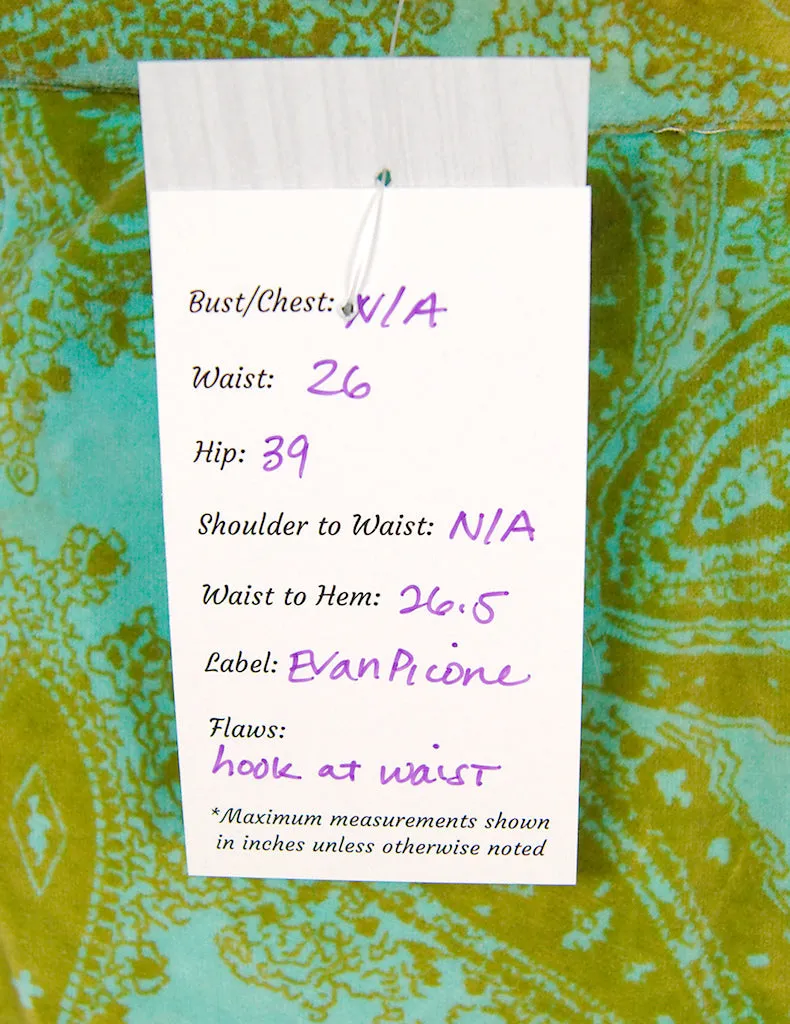 Bust/Chest: N/A
Waist: 26
Hip: 39
Shoulder to Waist: N/A
Waist to Hem: 26.5
Label: Evan Picone
Flaws:
hook at waist
*Maximum measurements shown
in inches unless otherwise noted